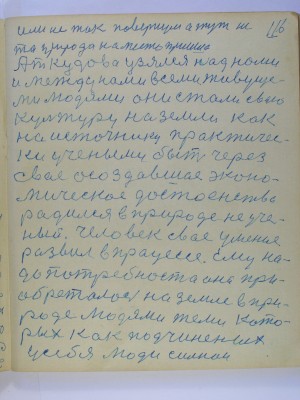 или не так повернум а тут не
116
та природа на место пришло
А откудова узялся над нами
и между нами всеми живуще-
ми людями они стали свою
културу на земли как
на источнику практичес-
ки учеными быть через
свае осоздавшае эконо-
мическое достоенство
радился в природе неуче-
ный. Человек свае умение
развил в працессе. Ему на-
до потребноста она при-
обреталос на земле в при-
роде людями теми кото-
рых как подчиненых
у себя люди силной